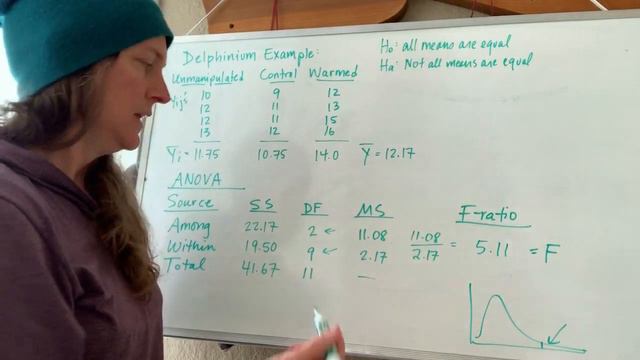 Delphinium Example:
Ho: all means are equal
Ha: Not all means are equal
Unmanipulated Control Warmed
Yij's 10 9 12
12 11 13
12 11 15
13 12 16
Ȳi = 11.75 10.75 14.0 Ȳ = 12.17
ANOVA
Source SS DF MS F-ratio
Among 22.17 2 ← 11.08 11.08/2.17 = 5.11 = F
Within 19.50 9 ← 2.17
Total 41.67 11 —